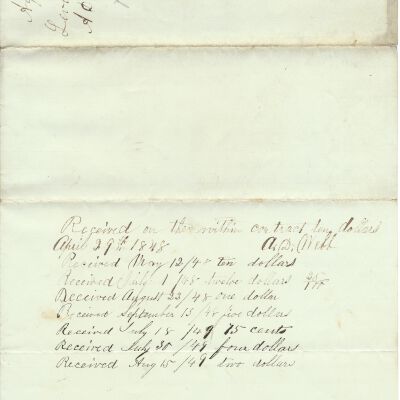 Received on the within contract ten dollars
April 29th 1848 A. D. Webb
Received May 12/48 ten dollars
Received July 1/48 twelve dollars
Received August 23/48 one dollar
Received September 13/48 five dollars
Received July 18/49 15 cents
Received July 30/49 four dollars
Received Aug 15/49 two dollars